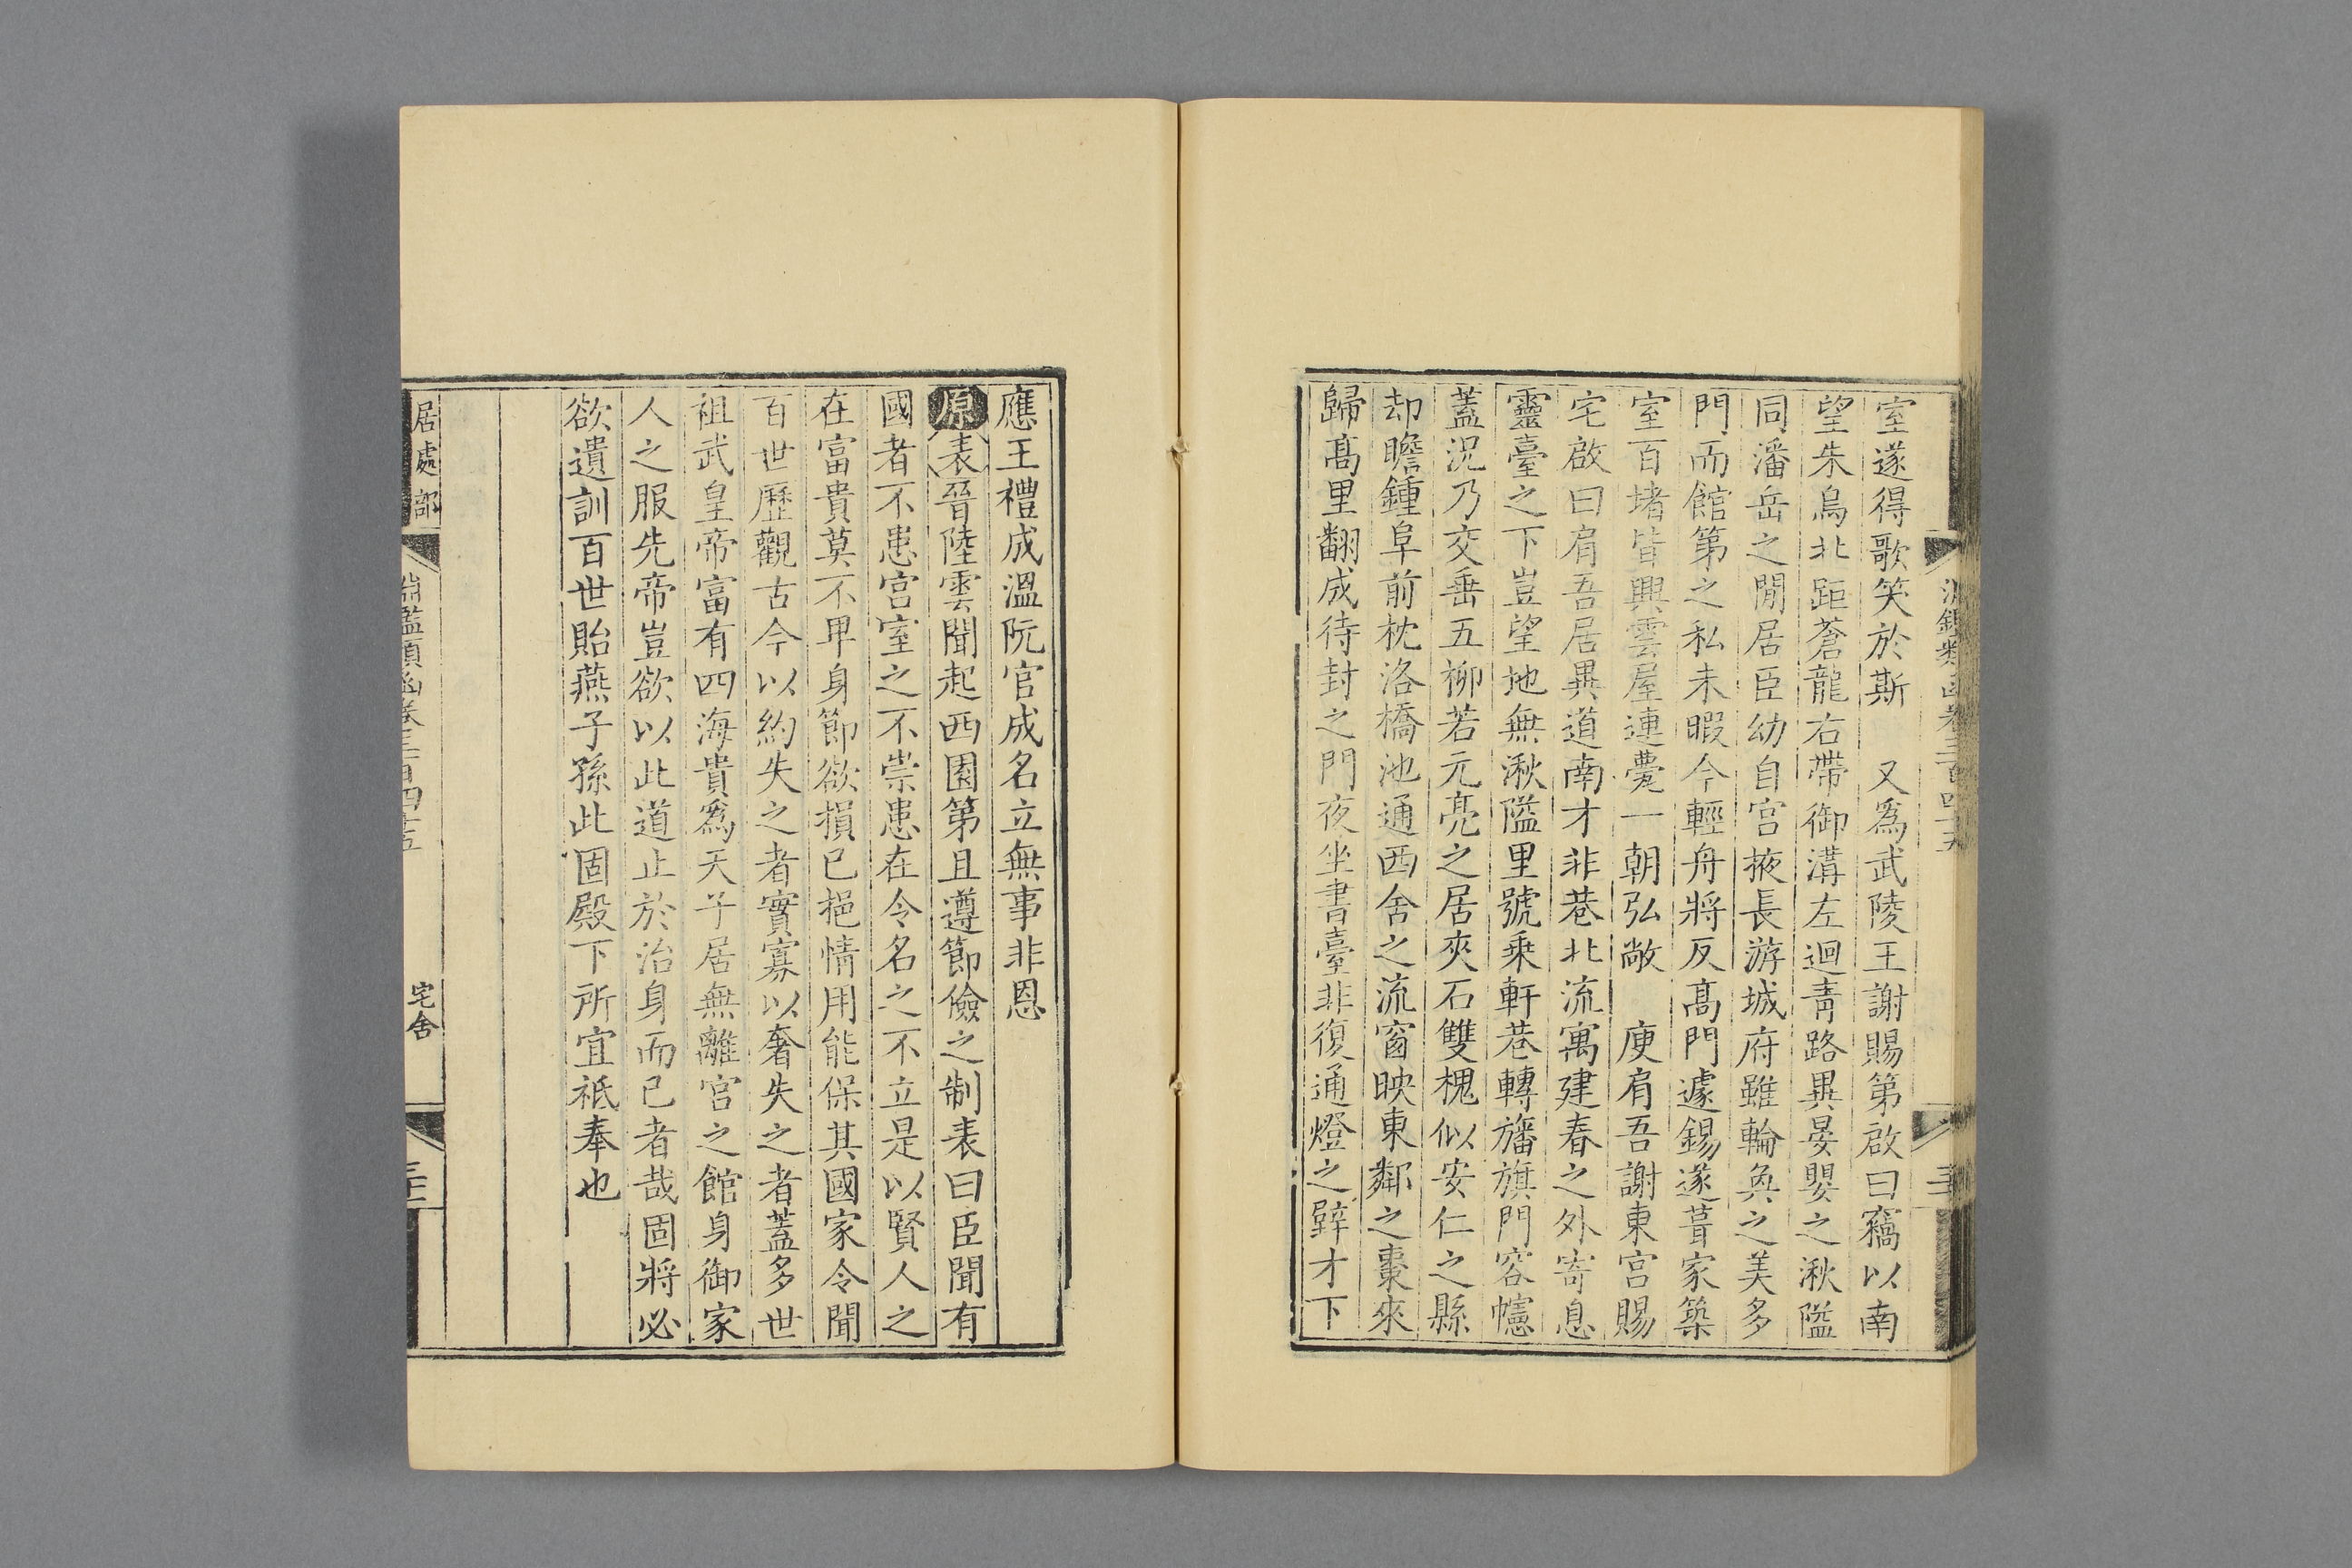 室遂得歌笑於斯　又爲武陵王謝賜第啟曰竊以南
望朱鳥北距蒼龍右帶御溝左迴青路異晏嬰之湫隘
同潘岳之閒居臣幼自宮掖長游城府雖輪奐之美多
門而館第之私未暇今輕舟將反高門遽錫遂葺家築
室百堵皆興雲屋連甍一朝弘敞　庾肩吾謝東宮賜
宅啟曰肩吾居異道南才非巷北流寓建春之外寄息
靈臺之下豈望地無湫隘里號乘軒巷轉旛旗門容幰
蓋況乃交垂五柳若元亮之居夾石雙槐似安仁之縣
却瞻鍾阜前枕洛橋池通西舍之流窗映東鄰之棗來
歸高里翻成待封之門夜坐書臺非復通燈之壁才下
應王禮成溫阮官成名立無事非恩
原表晉陸雲聞起西園第且遵節儉之制表曰臣聞有
國者不患宮室之不崇患在令名之不立是以賢人之
在富貴莫不卑身節欲損已挹情用能保其國家令聞
百世歷觀古今以約失之者實寡以奢失之者蓋多世
祖武皇帝富有四海貴爲天子居無離宮之館身御家
人之服先帝豈欲以此道止於治身而已者哉固將必
欲遺訓百世貽燕子孫此固殿下所宜祗奉也
居處部
淵鑑類函卷三百四十五
宅舍